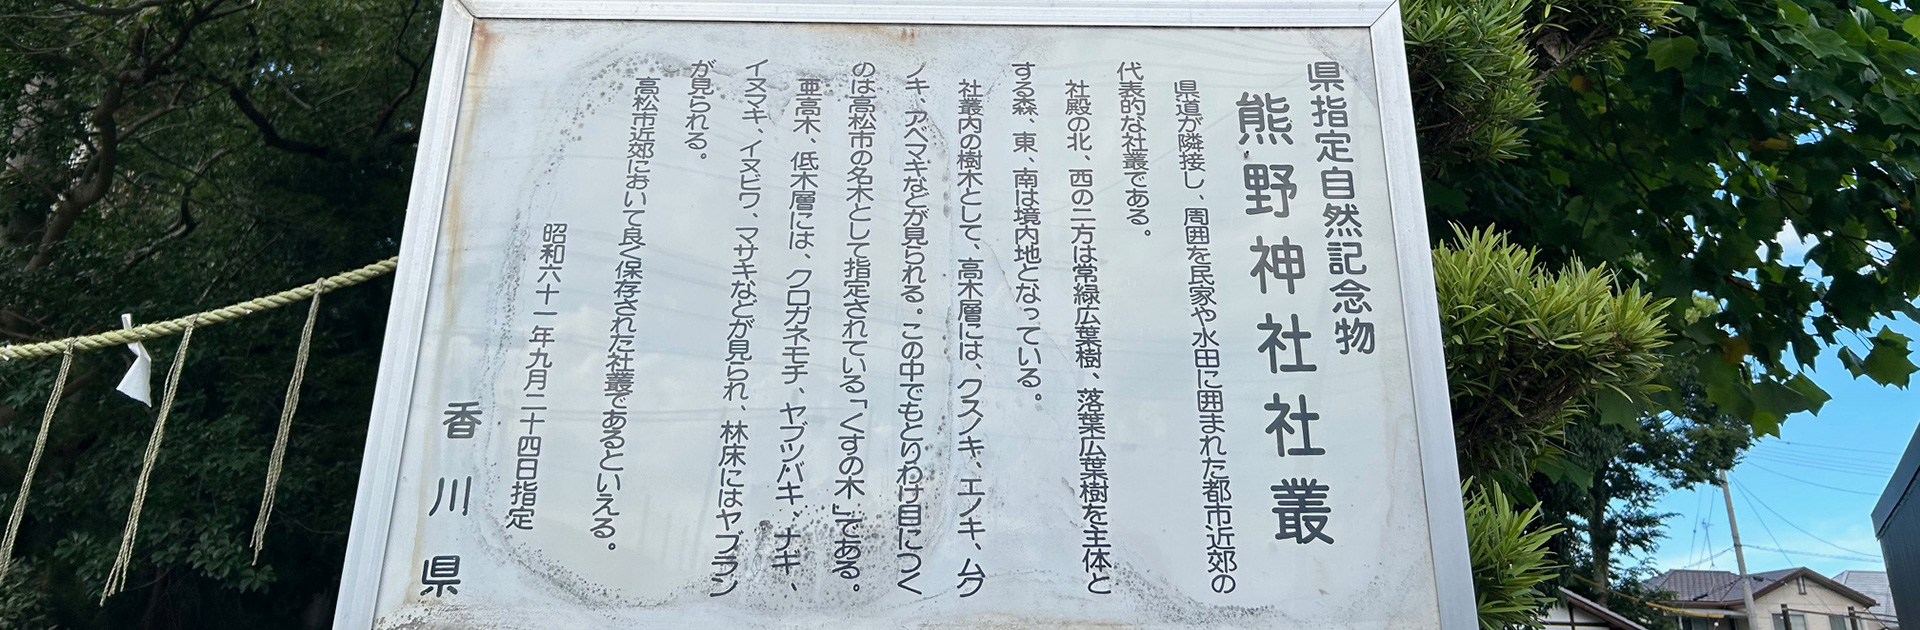 県指定自然記念物
熊野神社社叢
県道が隣接し、周囲を民家や水田に囲まれた都市近郊の
代表的な社叢である。
社殿の北、西の二方は常緑広葉樹、落葉広葉樹を主体と
する森、東、南は境内地となっている。
社叢内の樹木として、高木層には、クスノキ、エノキ、ムク
ノキ、アベマキなどが見られる。この中でもとりわけ目につく
のは高松市の名木として指定されている「くすの木」である。
亜高木、低木層には、クロガネモチ、ヤブツバキ、ナギ、
イヌマキ、イヌビワ、マサキなどが見られ、林床にはヤブラン
が見られる。
高松市近郊において良く保存された社叢であるといえる。
昭和六十一年九月二十四日指定
香川県